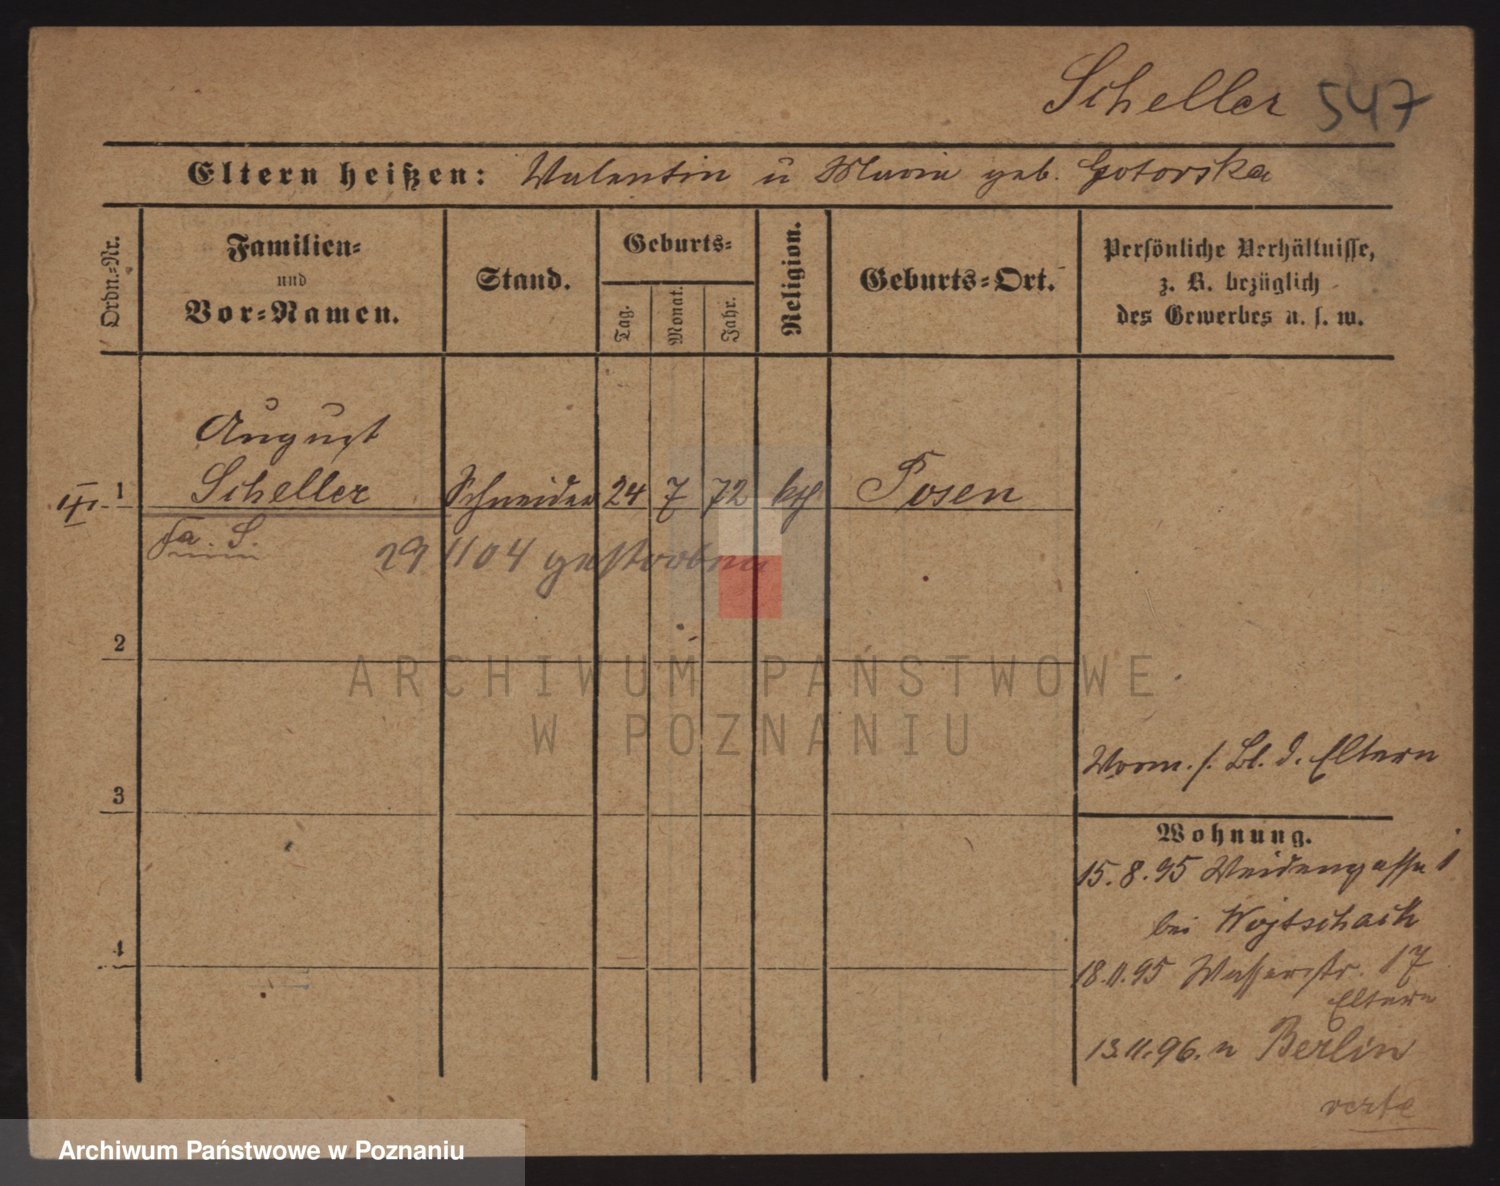 Scheller 547
Eltern heißen: Valentin u Maria geb. Gotorska
Ordn.=Nr.
Familien=
und
Vor=Namen.
Stand.
Geburts=
Tag.
Monat.
Jahr.
Religion.
Geburts=Ort.
Persönliche Verhältnisse,
z. B. bezüglich
des Gewerbes u. s. w.
August
1 Scheller Schneider 24 7 72 kth Posen
Fa. S.
29 1104 gestorben
2
ARCHIWUM PAŃSTWOWE
W POZNANIU
3
Vorm. s. Bl. d. Eltern
Wohnung.
15.8.95 Weidengasse 1
bei Wojtschack
4
18.11.95 Wasserstr. 17
Eltern
13.11.96. n Berlin
verte
Archiwum Państwowe w Poznaniu